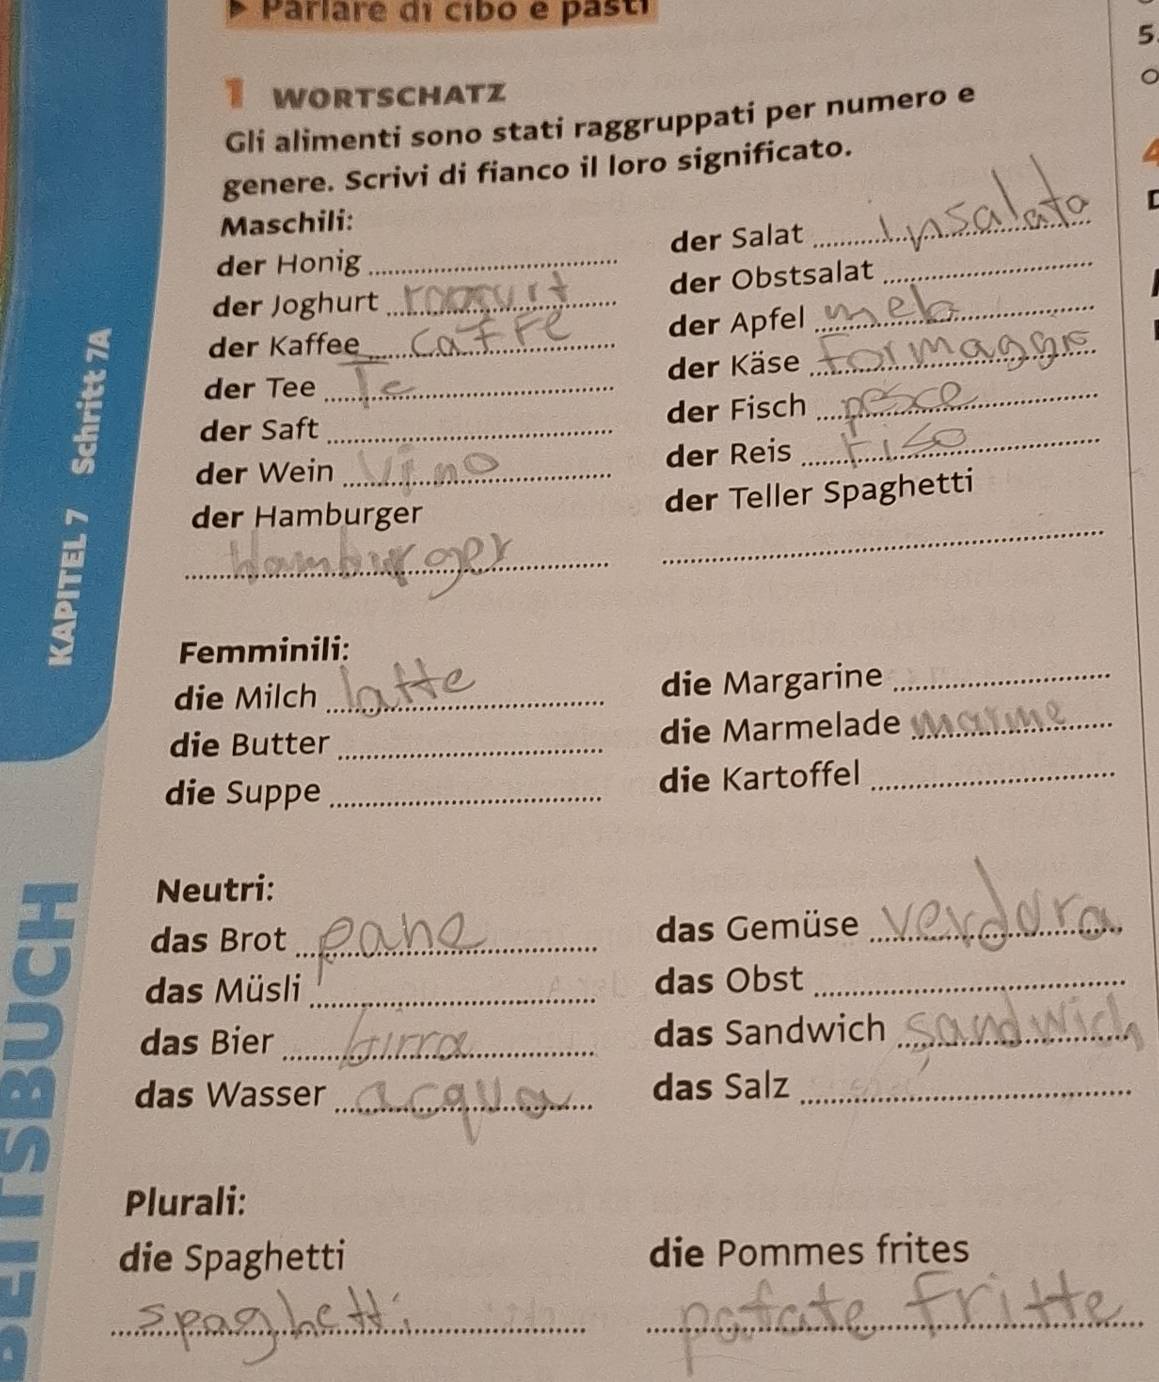 ▶ Parlare di cibo e pasti
1 WORTSCHATZ
Gli alimenti sono stati raggruppati per numero e
genere. Scrivi di fianco il loro significato.
Maschili:
der Honig
der Joghurt
der Kaffee caffe
der Tee Te
der Saft
der Wein vino
der Hamburger
Hamburger
der Salat Insalata
der Obstsalat
der Apfel mela
der Käse formaggio
der Fisch pesce
der Reis riso
der Teller Spaghetti
Femminili:
die Milch latte
die Butter
die Suppe
die Margarine
die Marmelade marme
die Kartoffel
Neutri:
das Brot pane
das Müsli
das Bier birra
das Wasser acqua
das Gemüse verdura
das Obst
das Sandwich sandwich
das Salz
Plurali:
die Spaghetti
spaghetti
die Pommes frites
patate fritte
KAPITEL 7 Schritt 7A
5